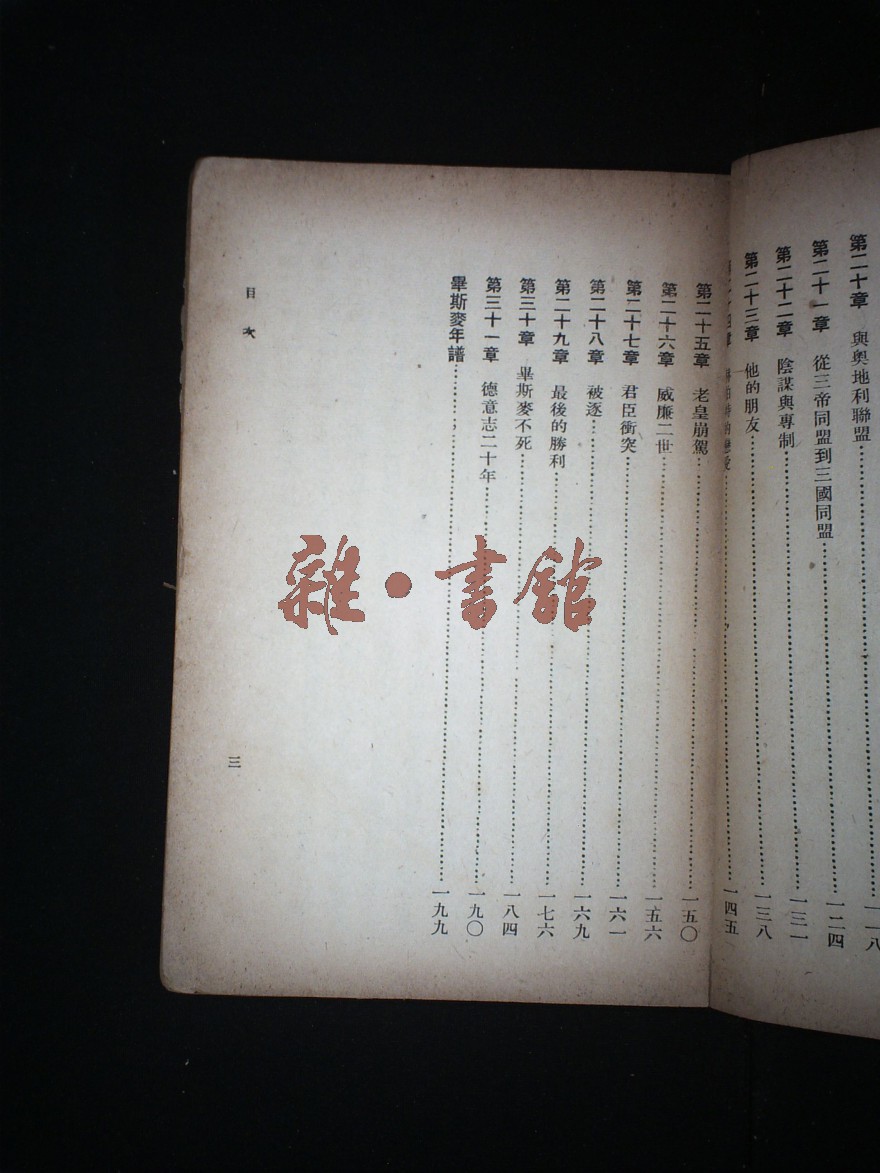 第二十章 與奧地利聯盟……一一八
第二十一章 從三帝同盟到三國同盟……一二四
第二十二章 陰謀與專制……一三一
第二十三章 他的朋友……一三八
的戀愛……一四五
第二十五章 老皇崩駕……一五〇
第二十六章 威廉二世……一五六
第二十七章 君臣衝突……一六一
第二十八章 被逐……一六九
第二十九章 最後的勝利……一七六
第三十章 畢斯麥不死……一八四
第三十一章 德意志二十年……一九〇
畢斯麥年譜……一九九
目次
三
雜·書館